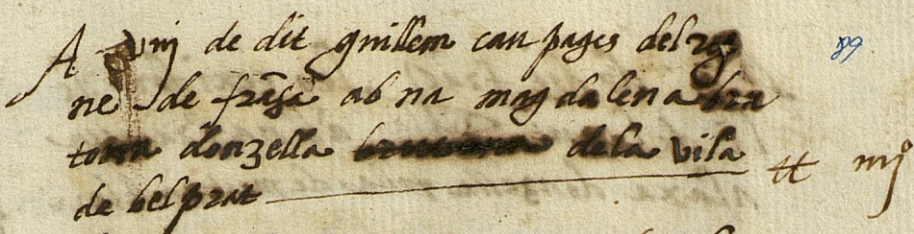 A viij de dit guillem cau pages del reg
ne de frãsa ab na magdalena bra
donzella dela vila
de belprat tt iiijº
89